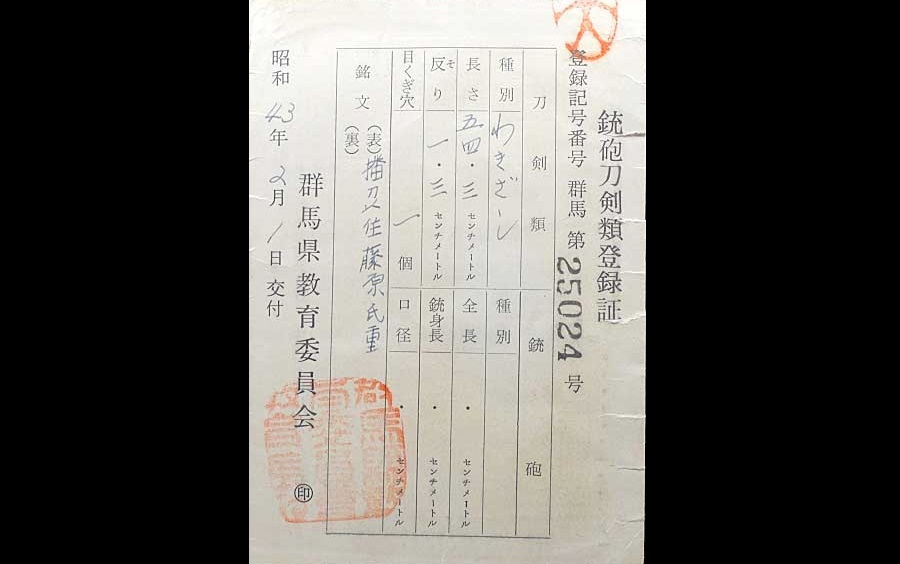 銃砲刀剣類登録証
登録記号番号 群馬 第 25024 号
刀剣類
銃砲
種別 わきざし
種別
長さ 五四・三 センチメートル
全長 ・ センチメートル
反り そ 一・三 センチメートル
銃身長 ・ センチメートル
目くぎ穴 一 個
口径 ・ センチメートル
銘文 (表) 播刕住藤原氏重
(裏)
群馬県教育委員会 印
昭和 43年 2月 1日 交付